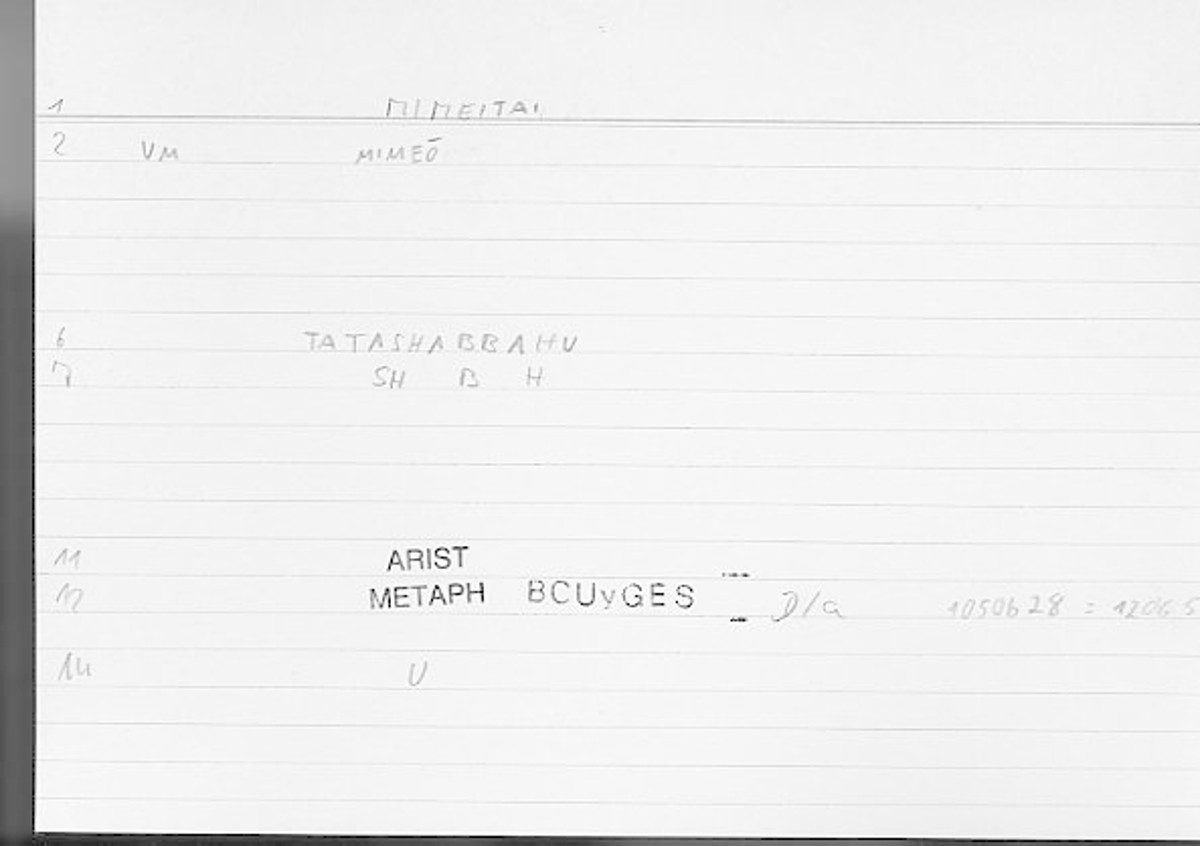 1 MIMEITAI
2 VM MIMEŌ
6 TATASHABBAHU
7 SH B H
11 ARIST
12 METAPH BCUyGES D/a 1050b28 = 1206 5
14 U